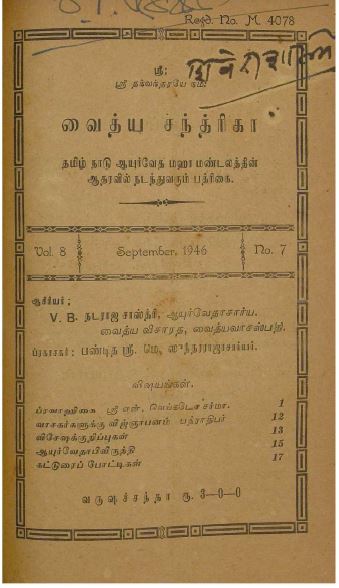 Regd. No. M. 4078
ஸ்ரீ:
ஸ்ரீ தந்வந்தரயே நம:
வைத்ய சந்த்ரிகா
தமிழ் நாடு ஆயுர்வேத மஹா மண்டலத்தின்
ஆதரவில் நடந்துவரும் பத்ரிகை.
Vol. 8 September, 1946 No. 7
ஆசிரியர் :
V. B. நடராஜ சாஸ்த்ரி, ஆயுர்வேதாசார்ய,
வைத்ய விசாரத, வைத்யவாசஸ்பதி.
ப்ரகாசகர் : பண்டித ஸ்ரீ. மெ. ஸுந்தரராஜாசார்யர்.
விஷயங்கள்.
ப்ரவாஹிகை ஸ்ரீ என். வெங்கடேச சர்மா. 1
வாசகர்களுக்கு விஜ்ஞாபனம் பத்ராதிபர் 12
விசேஷக்குறிப்புகள் 13
ஆயுர்வேதாபிவிருத்தி 15
கட்டுரைப் போட்டிகள் 17
வருஷச்சந்தா ரூ. 3—0—0